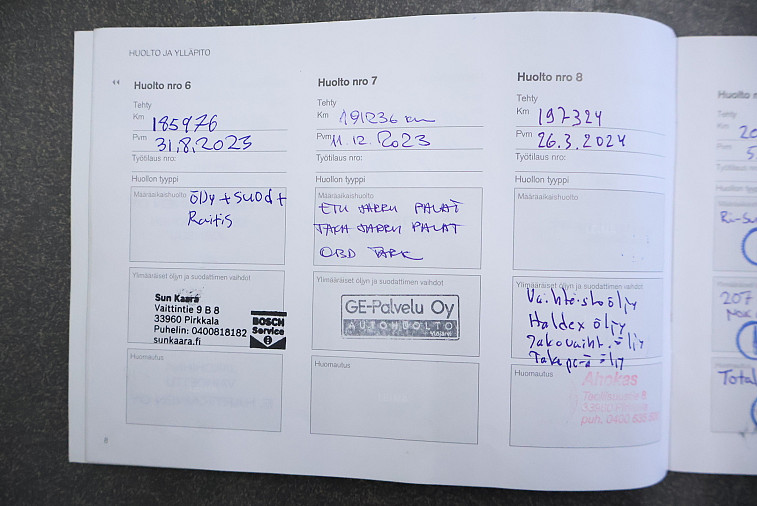 HUOLTO JA YLLÄPITO
Huolto nro 6
Tehty
Km 185976
Pvm 31.8.2023
Työtilaus nro:
Huollon tyyppi
Määräaikaishuolto
ÖLJY + SUOD +
Raitis
Ylimääräiset öljyn ja suodattimen vaihdot
Sun Kaara
Vaittintie 9 B 8
33960 Pirkkala
Puhelin: 0400818182
sunkaara.fi
BOSCH
Service
Huomautus
6
Huolto nro 7
Tehty
Km 191236 km
Pvm 11.12.2023
Työtilaus nro:
Huollon tyyppi
Määräaikaishuolto
ETU JARRU PALAT
TAKA JARRU PALAT
OBD TARK
Ylimääräiset öljyn ja suodattimen vaihdot
GE-Palvelu Oy
AUTOHUOLTO
Huomautus
Huolto nro 8
Tehty
Km 197324
Pvm 26.3.2024
Työtilaus nro:
Huollon tyyppi
Määräaikaishuolto
Ylimääräiset öljyn ja suodattimen vaihdot
Vaihteistoöljy
Haldex öljy
Jakovaiht. öljy
Takaperä öljy
Huomautus
Ahokas
Huolto
Tehty
Km 20
Pvm 5
Työtilaus nro
Huollon
207
Total